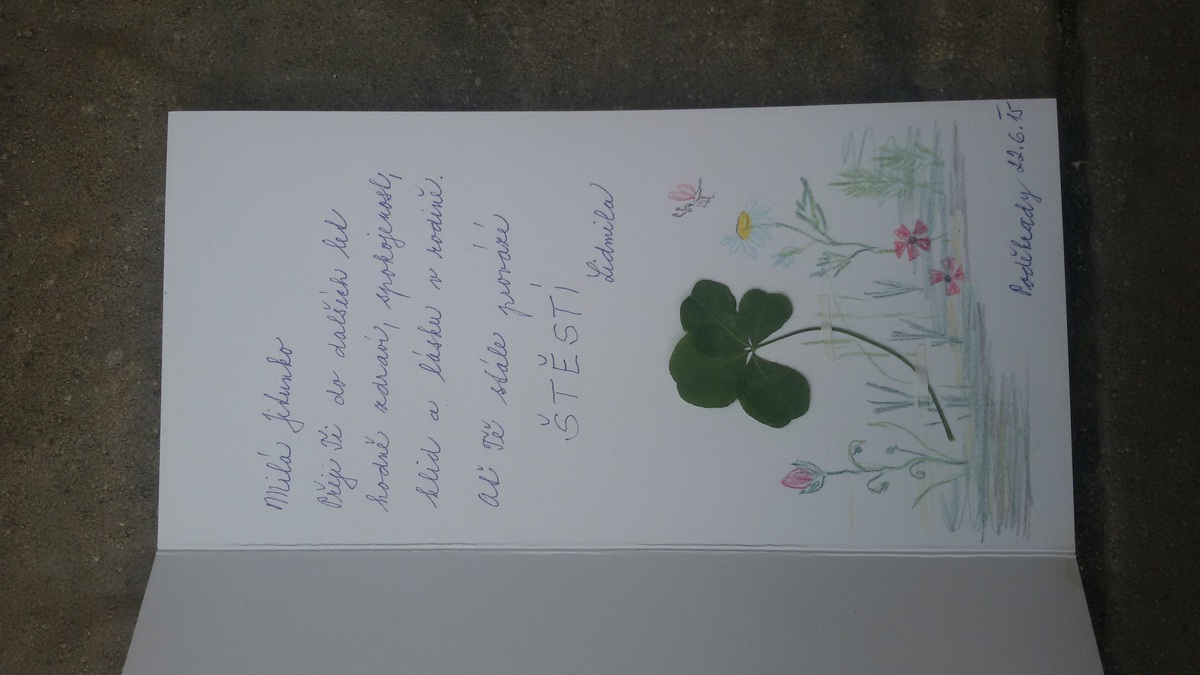 Milá Jitunko
Přeji Ti do dalších let
hodně zdraví, spokojenost,
klid a lásku v rodině.
Ať Tě stále provází
ŠTĚSTÍ
Lidmila
Poděbrady 22.6.15